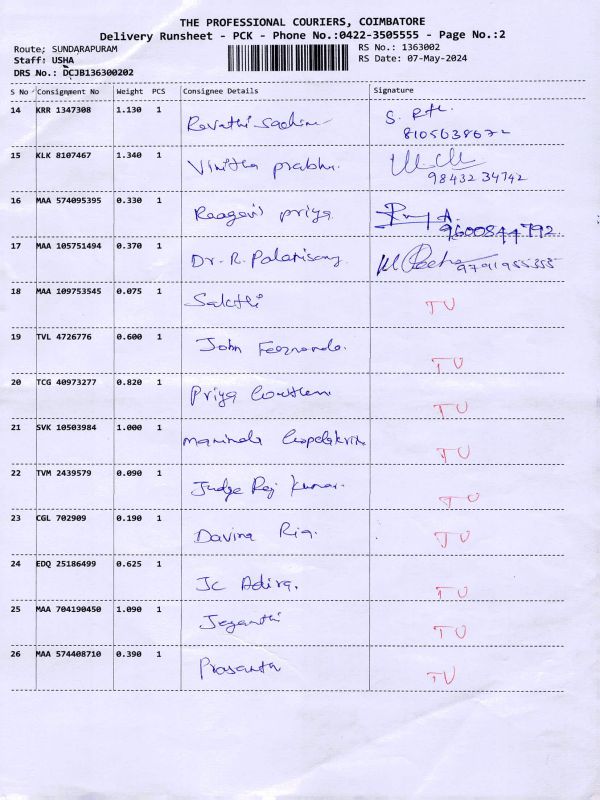 THE PROFESSIONAL COURIERS, COIMBATORE
Delivery Runsheet - PCK - Phone No.:0422-3505555 - Page No.:2
Route; SUNDARAPURAM
RS No.: 1363002
Staff: USHA
RS Date: 07-May-2024
DRS No.: DCJB136300202
S No Consignment No Weight PCS Consignee Details Signature
14 KRR 1347308 1.130 1 Revathi S. 
8105638672
15 KLK 8107467 1.340 1 Vinitha prabhu.
98432 34742
16 MAA 574095395 0.330 1 Raagavi priya
9600844792
17 MAA 105751494 0.370 1 Dr. R. Palanisamy
18 MAA 109753545 0.075 1 Sakthi TU
19 TVL 4726776 0.600 1 John Fernando. TU
20 TCG 40973277 0.820 1 Priya TU
21 SVK 10503984 1.000 1 TU
22 TVM 2439579 0.090 1 Judge Raj Kumar. TU
23 CGL 702909 0.190 1 Davina Ria. TU
24 EDQ 25186499 0.625 1 Jc Adira. TU
25 MAA 704190450 1.090 1 Jeyanthi TU
26 MAA 574408710 0.390 1 Prasanth TU